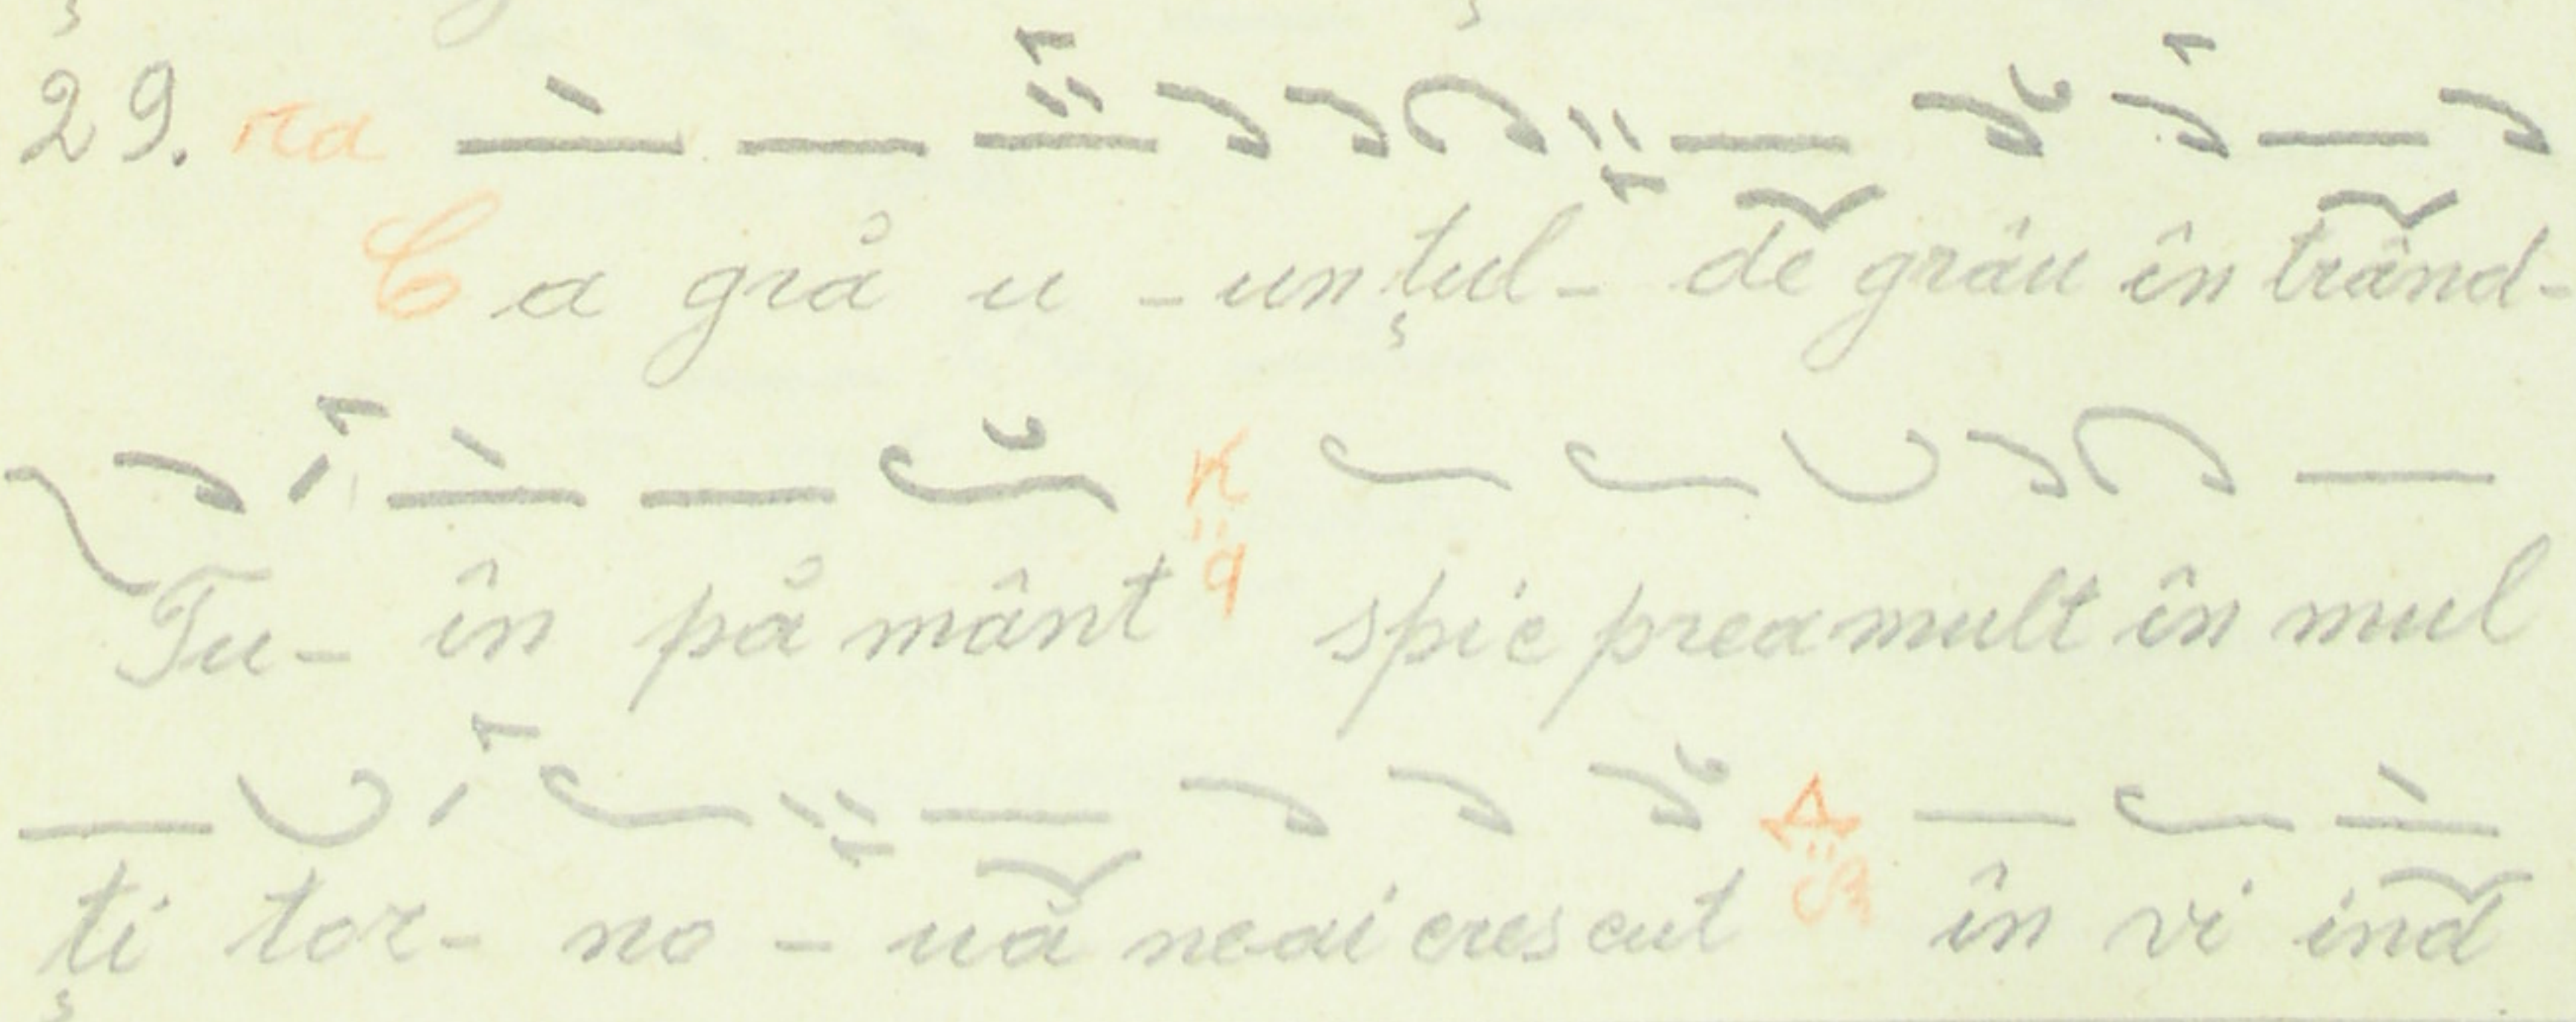 29. na
Ca grå u - unțul - de grâu în trând -
Tu - în på mânt π q spic prea mult în mul
ți tor - no - uă neai crescut Δ în vi ind